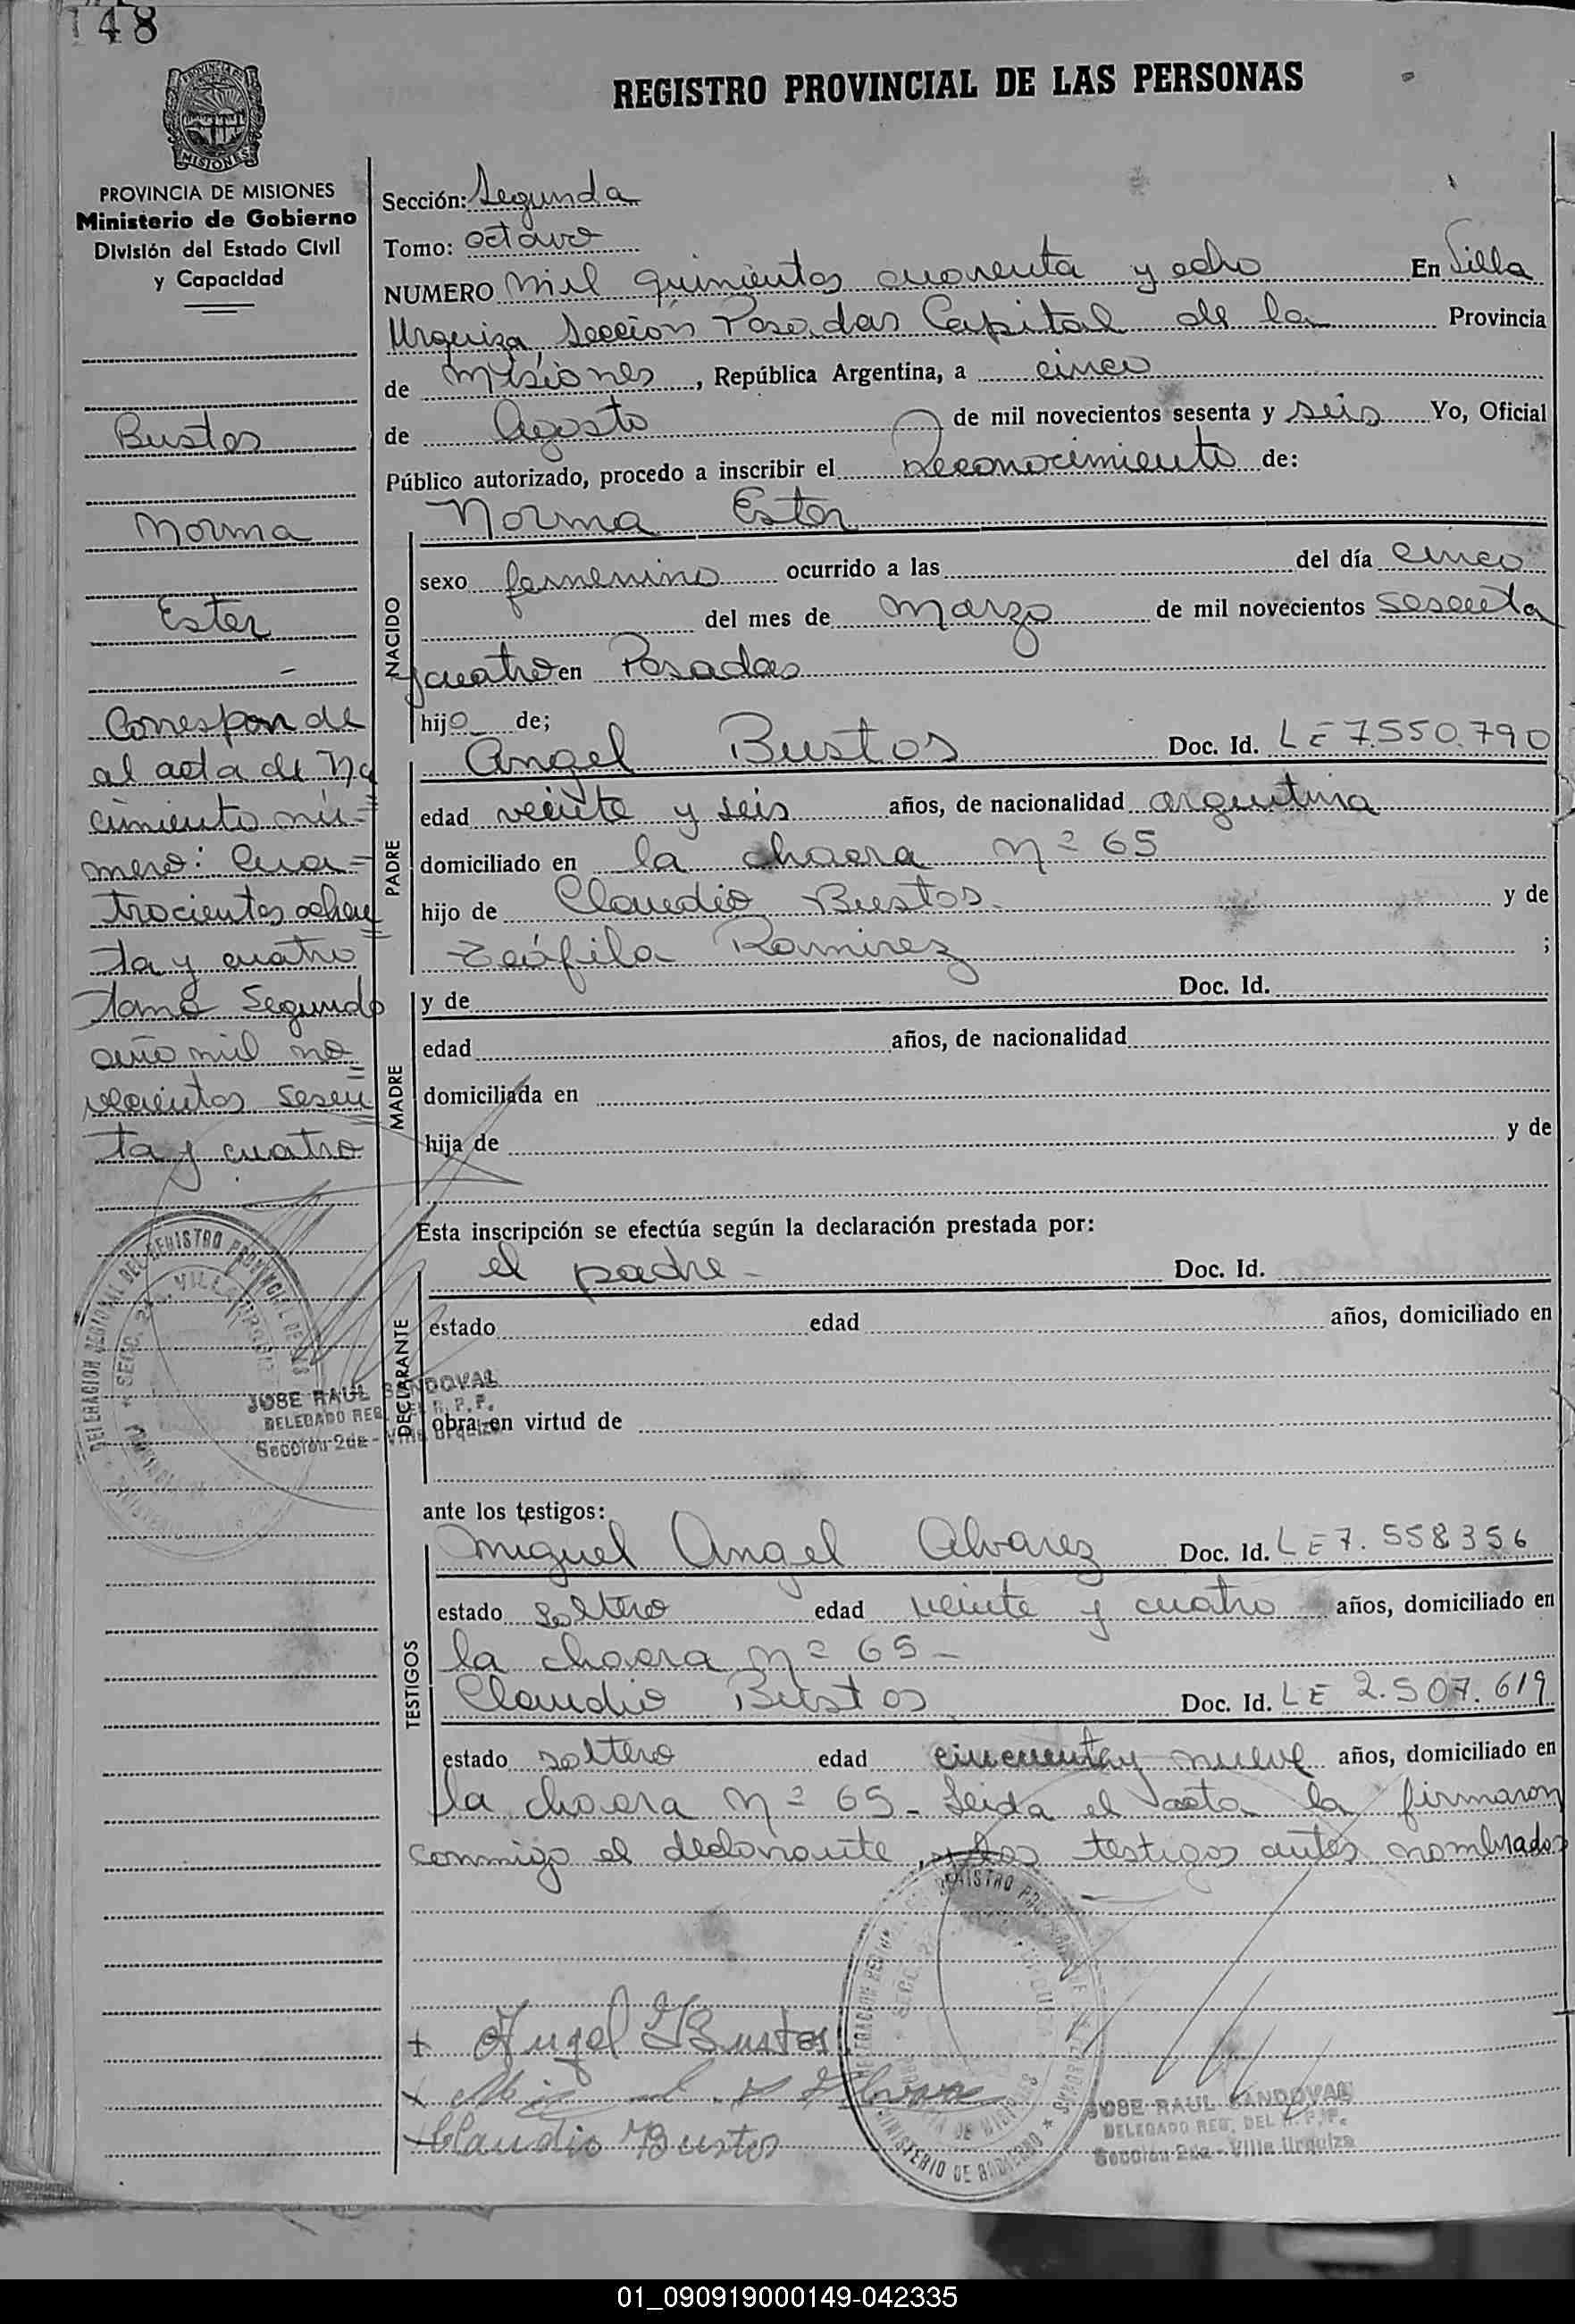 148
PROVINCIA DE MISIONES
MISIONES
REGISTRO PROVINCIAL DE LAS PERSONAS
PROVINCIA DE MISIONES
Ministerio de Gobierno
División del Estado Civil
y Capacidad
Bustos
Norma
Ester
Corresponde
al acta de Na
cimiento nú=
mero: Cua=
trocientos ochen
ta y cuatro
tomo Segundo
año mil no
vecientos sesen
ta y cuatro
JOSE RAUL SANDOVAL
DELEGADO REG. DEL R.P.P.
Sección 2da - Villa Urquiza
Sección: Segunda
Tomo: octavo
NUMERO mil quinientos cuarenta y ocho En Villa
Urquiza, Sección Posadas Capital de la Provincia
de Misiones, República Argentina, a cinco
de Agosto de mil novecientos sesenta y seis Yo, Oficial
Público autorizado, procedo a inscribir el Reconocimiento de:
Norma Ester
NACIDO
sexo femenino ocurrido a las del día cinco
del mes de Marzo de mil novecientos sesenta
y cuatro en Posadas
hijo de;
PADRE
Angel Bustos Doc. Id. LE 7.550.790
edad veinte y seis años, de nacionalidad argentina
domiciliado en la chacra Nº 65
hijo de Claudio Bustos y de
Teófila Ramirez ;
MADRE
y de Doc. Id.
edad años, de nacionalidad
domiciliada en
hija de y de
Esta inscripción se efectúa según la declaración prestada por:
DECLARANTE
el padre- Doc. Id.
estado edad años, domiciliado en
obra en virtud de
ante los testigos:
TESTIGOS
Miguel Angel Alvarez Doc. Id. LE 7.558.356
estado soltero edad veinte y cuatro años, domiciliado en
la chacra Nº 65-
Claudio Bustos Doc. Id. LE 2.507.619
estado soltero edad cincuenta y nueve años, domiciliado en
la chacra Nº 65- Leida el acta la firmaron
conmigo el declarante, y los testigos antes nombrados
+ Angel Bustos
x
+ Claudio Bustos
MINISTERIO DE GOBIERNO
JOSE RAUL SANDOVAL
DELEGADO REG. DEL R.P.P.
Sección 2da - Villa Urquiza
01_090919000149-042335